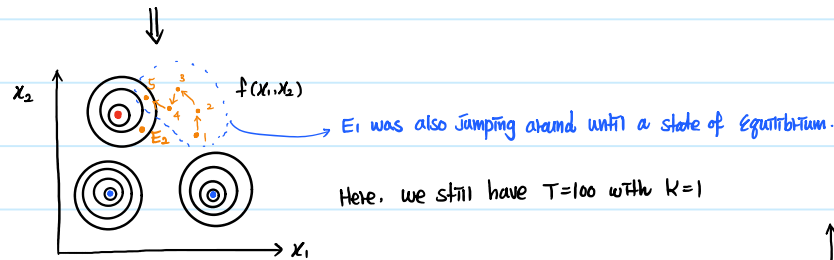 5
3
f(x₁,x₂)
x₂
2
4
1
E₂
E₁ was also Jumping around until a state of Equilibrium.
Here, we still have T=100 with K=1
x₁